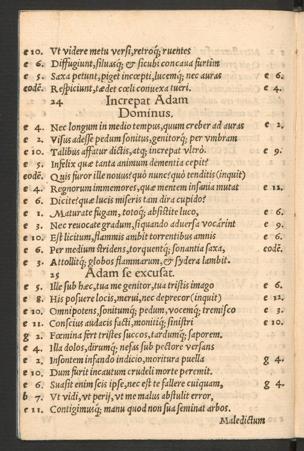 e 10. Vt videre metu versi, retroq; ruentes
e 6. Diffugiunt, siluasq; & sicubi concaua furtim
e 5. Saxa petunt, piget incœpti, lucemq; nec auras e 6.
eodẽ. Respiciunt, tædet cœli conuexa tueri. e 4.
24 Increpat Adam
Dominus.
e 4. Nec longum in medio tempus, quum creber ad auras e 2.
e 2. Visus adesse pedum sonitus, genitorq; per vmbram
e 10. Talibus affatur dictis, atq; increpat vltrò. e 9.
e 5. Infelix quæ tanta animum dementia cepit?
eodẽ. Quis furor ille nouus? quò nunc? quò tenditis (inquit)
e 4. Regnorum immemores, quæ mentem insania mutat e 12.
e 6. Dicite? quæ lucis miseris tam dira cupido?
e 1. Maturate fugam, totoq; absistite luco, e 6.
e 3. Nec reuocate gradum, siquando aduersa vocarint e 9.
e 10. Est licitum, flammis ambit torrentibus amnis e 6.
e 6. Per medium stridens, torquentq; sonantia saxa, eodẽ.
e 3. Attollitq; globos flammarum, & sydera lambit.
25 Adam se excusat.
e 5. Ille sub hæc, tua me genitor, tua tristis imago e 6.
e 8. His posuere locis, merui, nec deprecor (inquit) e 12.
e 10. Omnipotens, sonitumq; pedum, vocemq; tremisco e 3.
e 11. Conscius audacis facti, monitiq; sinistri e 10.
g 2. Fœmina fert tristes succos, tardumq; saporem.
e 4. Illa dolos, dirumq; nefas sub pectore versans
e 2. Insontem infando indicio, moritura puella g 4.
e 10. Dum furit incautum crudeli morte peremit.
e 6. Suasit enim scis ipse, nec est te fallere cuiquam, g 4.
b 7. Vt vidi, vt perij, vt me malus abstulit error,
e 11. Contigimusq; manu quod non sua seminat arbos.
Maledictum